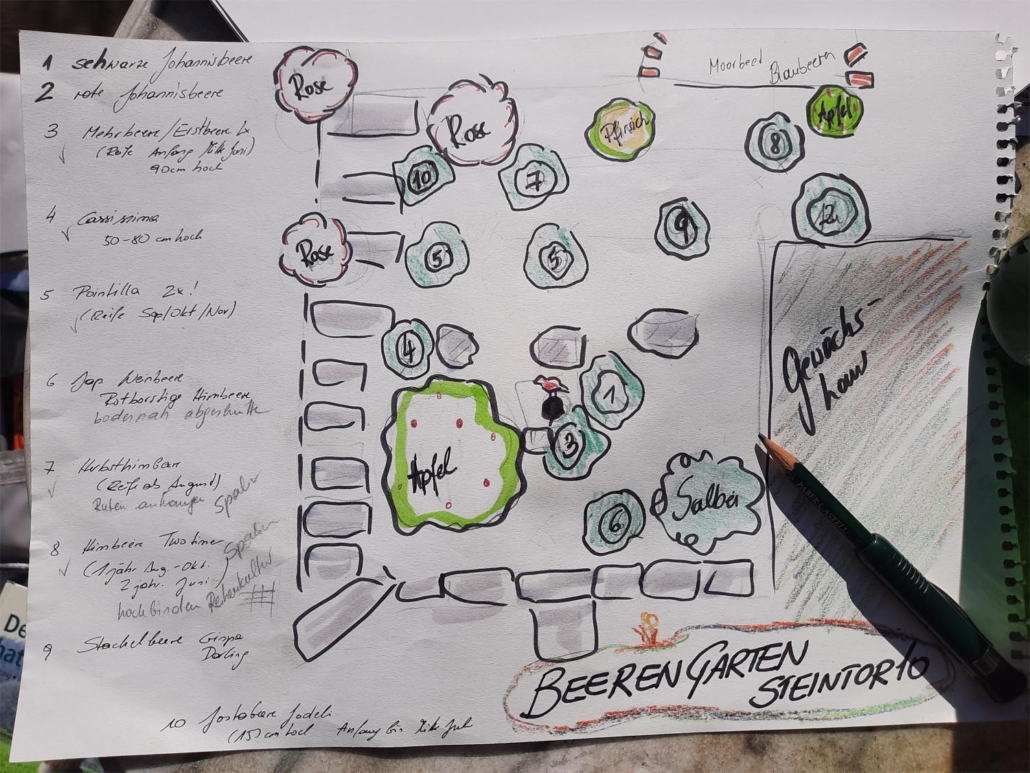 1 schwarze Johannisbeere
2 rote Johannisbeere
3 Mehrbeere/Erstbeere 2x
(Reife Anfang Mitte Juni)
90cm hoch
4 Cassissima
50-80 cm hoch
5 Pointilla 2x!
(Reife Sep/Okt/Nov)
6 Jap Weinbeere
Rotborstige Himbeere
bodennah
7 Herbsthimbeer
(Reife ab August)
Ruten Spalier
8 Himbeere Twotimer
(1 jähr Aug-Okt.
2 jähr. Juni
hochbinden Spalier
9 Stachelbeere
Darling
10 Jostabeere
cm hoch Anfang bis Mitte
Rose
Rose
Rose
Pfirsich
Moorbeet
Blaubeeren
Apfel
8
10
7
12
9
5
5
4
1
3
Apfel
6
Salbei
Gewächs-
haus
BEERENGARTEN
STEINTOR10